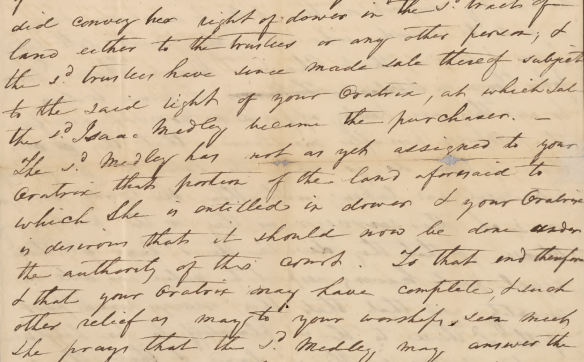 did convey her right of dower in the sd. tracts of
land either to the trustees or any other person; &
the sd. trustees have since made sale thereof subject
to the said right of your Oratrix, at which sale
the sd. Isaac Medley became the purchaser. —
The sd. Medley has not as yet assigned to your
Oratrix that portion of the land aforesaid to
which she is entitled in dower & your Oratrix
is desirous that it should now be done under
the authority of this court. To that end therefore
& that your Oratrix may have complete, & such
other relief as may to your worships seem meet
she prays that the sd. Medley may answer the